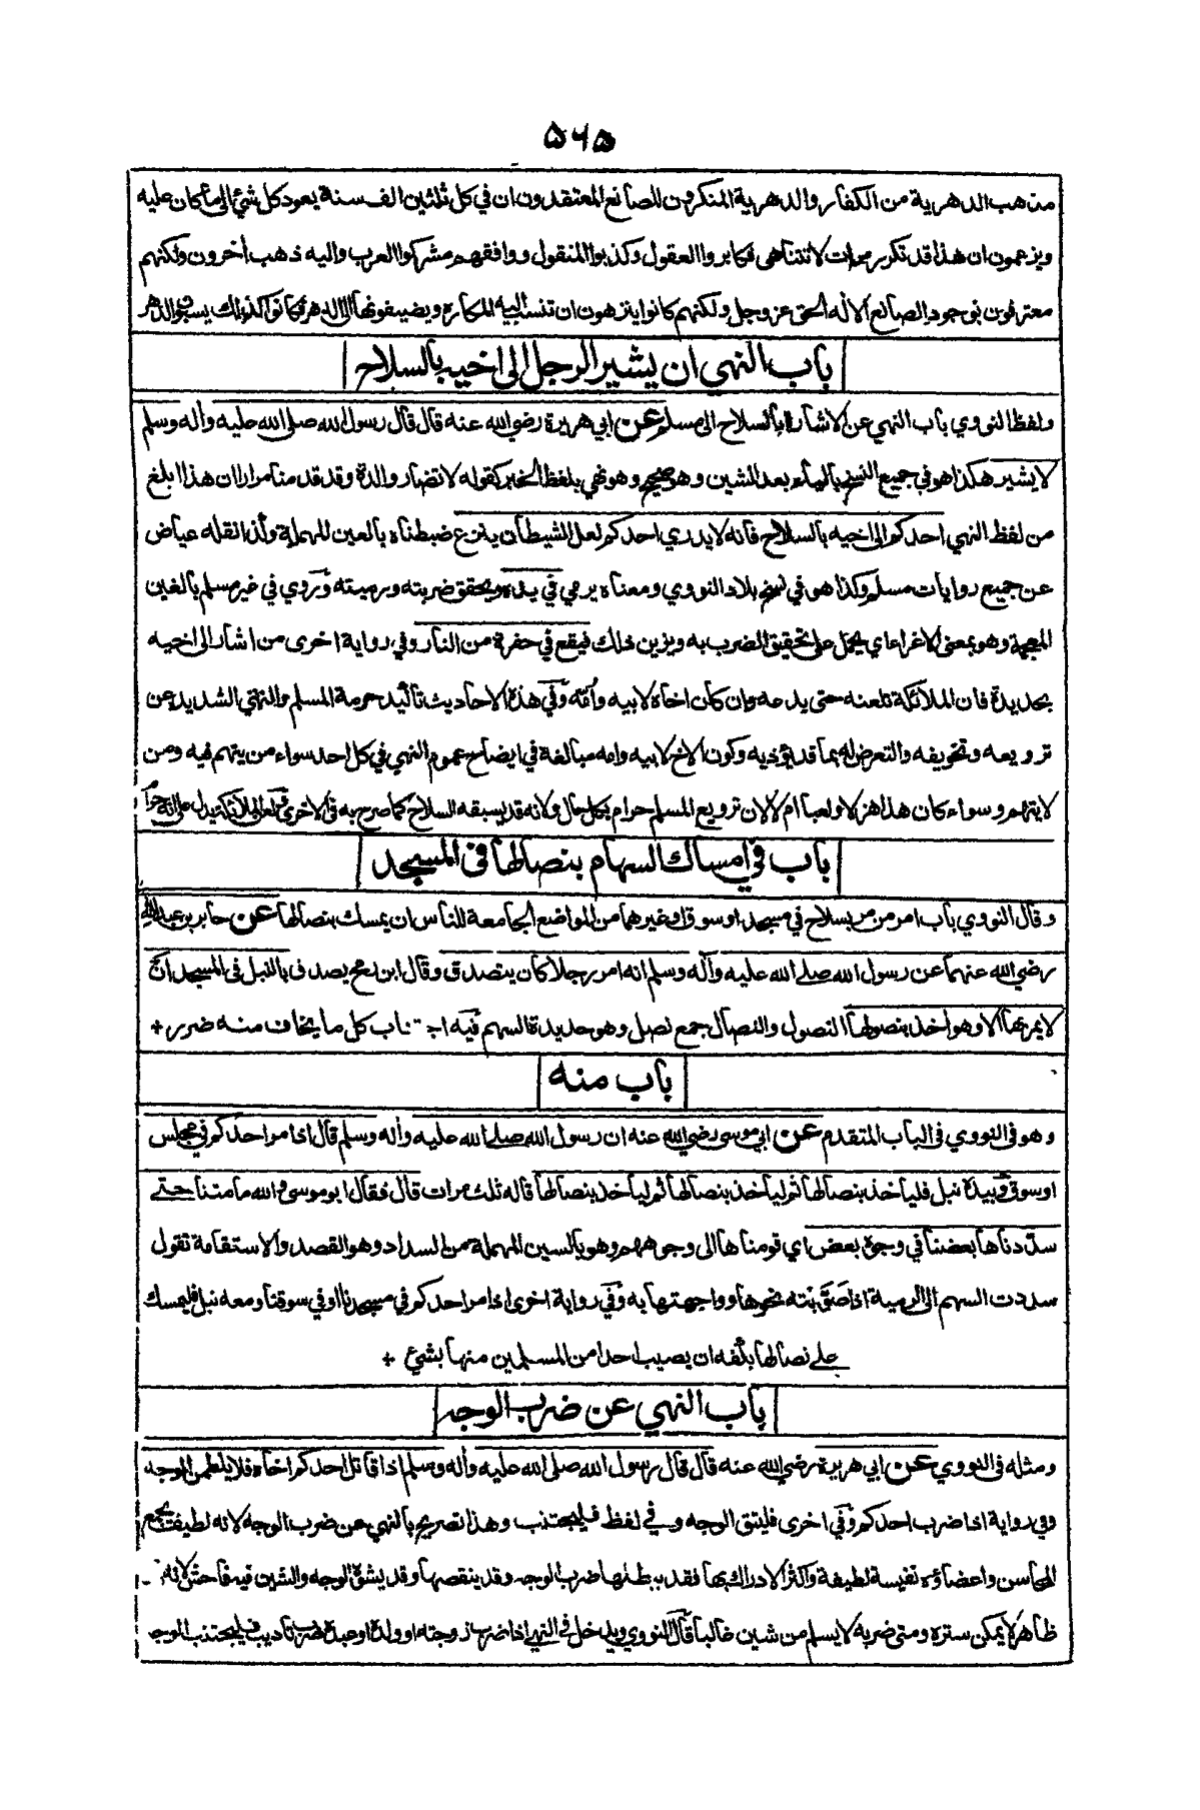 ۵۶۵
مذهب الدهرية من الكفار والدهرية المنكرون للصانع المعتقدون ان في كل ثلثين الف سنة يعود كل شئ الى ما كان عليه
ويزعمون ان هذا قد تكرر مرات لا تتناهى فكابروا العقول وكذبوا المنقول ووافقهم مشركوا العرب واليه ذهب أخرون ولكنهم
معترفون بوجود الصانع الاله الحق عز وجل ولكنهم كانوا ينزهون ان تنسب اليه المكاره ويضيفونها الى الدهر فكانوا كذلك يسبون الدهر
باب النهي ان يشير الرجل الى اخيه بالسلاح
ولفظ النووي باب النهي عن الاشارة بالسلاح الى مسلم عن ابي هريرة رضي الله عنه قال قال رسول الله صلى الله عليه وأله وسلم
لا يشير هكذا هو في جميع النسخ بالياء بعد الشين وهو صحيح وهو نهي بلفظ الخبر كقوله لا تضار والدة وقد قدمنا مرارا ان هذا ابلغ
من لفظ النهي احدكم الى اخيه بالسلاح فانه لا يدري احدكم لعل الشيطان ينزع ضبطناه بالعين المهملة وكذا نقله عياض
عن جميع روايات مسلم وكذا هو في نسخ بلاد النووي ومعناه يرمي في يده ويحقق ضربته ورميته وروي في غير مسلم بالغين
المعجمة وهو بمعنى الاغراء اي يحمل على تحقيق الضرب به ويزين ذلك فيقع في حفرة من النار وفي رواية اخرى من اشار الى اخيه
بحديدة فان الملائكة تلعنه حتى يدعه وان كان اخاه لابيه وأمه وفي هذه الاحاديث تأكيد حرمة المسلم والنهي الشديد عن
ترويعه وتخويفه والتعرض له بما قد يؤذيه وكون الاخ لابيه وامه مبالغة في ايضاح عموم النهي في كل احد سواء من يتهم فيه ومن
لا يتهم وسواء كان هذا هزلا ولعبا ام لا لان ترويع المسلم حرام بكل حال ولانه قد يسبقه السلاح كما صرح به في الاخرى ولعن الملائكة يدل على انه حرام
باب في امساك السهام بنصالها في المسجد
وقال النووي باب امر من مر بسلاح في مسجد او سوق او غيرهما من المواضع الجامعة للناس ان يمسك بنصالها عن جابر بن عبد الله
رضي الله عنهما عن رسول الله صلے الله عليه وأله وسلم انه امر رجلا كان يتصدق وقال ابن رمح يصدق بالنبل في المسجد ان
لا يمر بها الا وهو اخذ بنصولها النصول والنصال جمع نصل وهو حديدة السهم فيه اجتناب كل ما يخاف منه ضرر +
باب منه
وهو في النووي في الباب المتقدم عن ابي موسى رضي الله عنه ان رسول الله صلے الله عليه وأله وسلم قال اذا مر احدكم في مجلس
او سوق وبيده نبل فلياخذ بنصالها ثم لياخذ بنصالها ثم لياخذ بنصالها قاله ثلث مرات قال فقال ابو موسى والله ما متنا حتے
سددناها بعضنا في وجوه بعض اي قومناها الى وجوههم وهو بالسين المهملة من السداد وهو القصد والاستقامة تقول
سددت السهم الى الرمية اذا صَوَّبته نحوها وواجهتها به وفي رواية اخرى اذا مر احدكم في مسجدنا او في سوقنا ومعه نبل فليمسك
علے نصالها بكفه ان يصيب احدا من المسلمين منها بشئ +
باب النهي عن ضرب الوجه
ومثله في النووي عن ابي هريرة رضي الله عنه قال قال رسول الله صلى الله عليه وأله وسلم اذا قاتل احدكم اخاه فلا يلطمن الوجه
وفي رواية اذا ضرب احدكم وفي اخرى فليتق الوجه وفي لفظ فليجتنب وهذا تصريح بالنهي عن ضرب الوجه لانه لطيف يجمع
المحاسن واعضاؤه نفيسة لطيفة واكثر الادراك بها فقد يبطلها ضرب الوجه وقد ينقصها وقد يشق الوجه والشين فيه فاحش لانه
ظاهر لا يمكن ستره ومتى ضربه لا يسلم من شين غالبا قال النووي ويدخل في النهي اذا ضرب زوجته او ولده او عبده ضرب تاديب فليجتنب الوجه